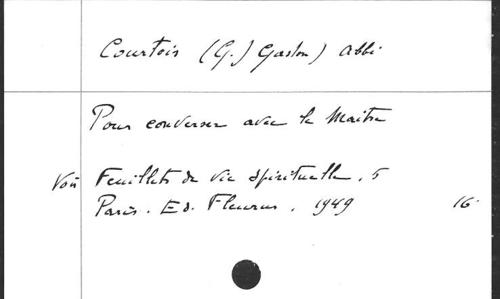 Courtois (G.) Gaston) abbé
Pour converser avec le Maitre
Voir Feuillets de vie spirituelle, 5
Paris. Ed. Fleurus, 1949 16